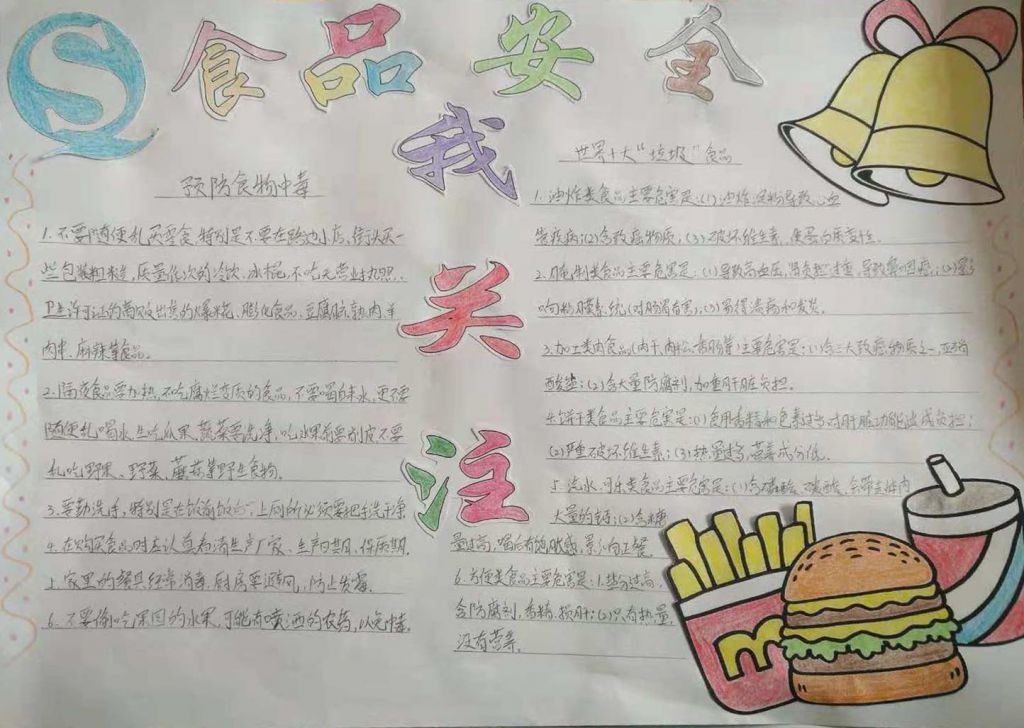 S
食品安全
我
关
注
预防食物中毒
1.不要随便乱买零食,特别是不要在路边小店、街头买一
些包装粗糙,质量低次的冷饮、冰棍,不吃无营业执照、
卫生许可证的商贩出售的爆米花、膨化食品、豆腐
肉串、麻辣等食品。
2.隔夜食品要加热,不吃腐烂变质的食品,不要喝自来水,更不要
随便乱喝水,生吃瓜果、蔬菜要洗净,吃水果前要削皮不要
乱吃野果、野菜、蘑菇等野生食物。
3.要勤洗手,特别是在饭前饭后,上厕所必须要把手洗干净
4.在购买食品时左认查看清生产厂家、生产日期,保质期。
5.家里的餐具经常消毒,厨房要通风,防止发霉。
6.不要偷吃果园的水果,可能有喷洒的农药,以免中毒。
世界十大“垃圾”食品
1.油炸类食品主要危害是:(1)油炸淀粉导致心血
管疾病;(2)含致癌物质;(3)破坏维生素,使蛋白质变性。
2.腌制类食品主要危害是:(1)导致高血压,肾负担过重,导致鼻咽癌;(2)影
响粘膜系统(对肠胃有害);(3)易得溃疡和发炎。
3.加工类肉食品(肉干、肉松、香肠等)主要危害是:(1)含三大致癌物质之一,亚硝
酸盐;(2)含大量防腐剂,加重肝脏负担。
4.饼干类食品主要危害是:(1)食用香精和色素过多对肝脏功能造成负担;
(2)严重破坏维生素;(3)热量过多,营养成分低。
5.汽水、可乐类食品主要危害是:(1)含磷酸、碳酸,会带走体内
大量的钙;(2)含糖
量过高,喝后有饱胀感,影响正餐
6.方便类食品主要危害是:1.盐分过高,
含防腐剂,香精,损肝;(2)只有热量,
没有营养。